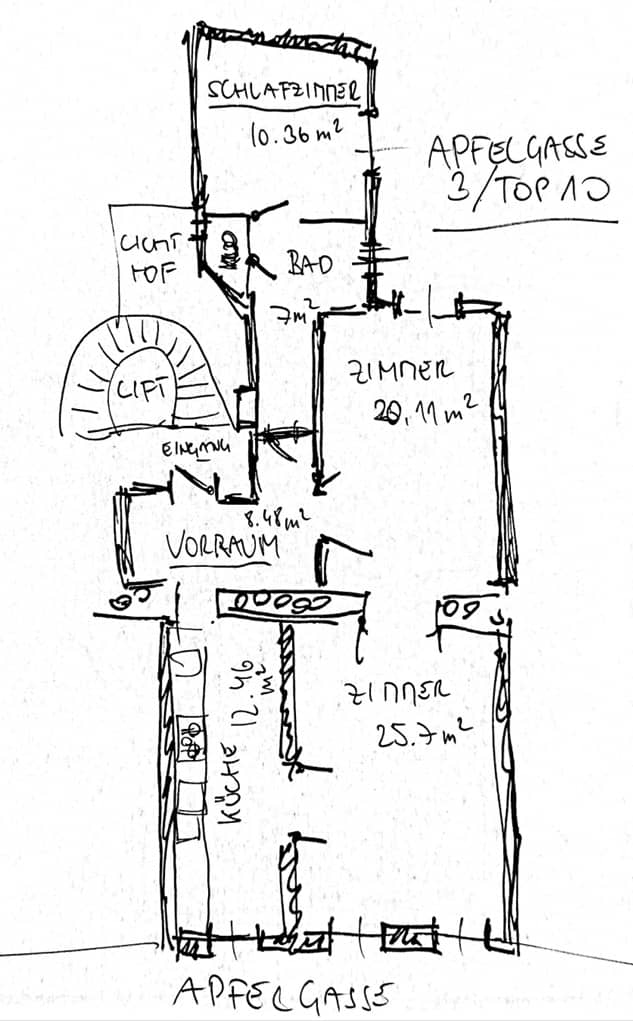 SCHLAFZIMMER
10.36 m²
APFELGASSE
3/TOP 10
LICHT
HOF
BAD
7m²
ZIMMER
20,11 m²
LIFT
EINGANG
8.48 m²
VORRAUM
ZIMMER
25.7 m²
KÜCHE 12.46
m²
APFELGASSE